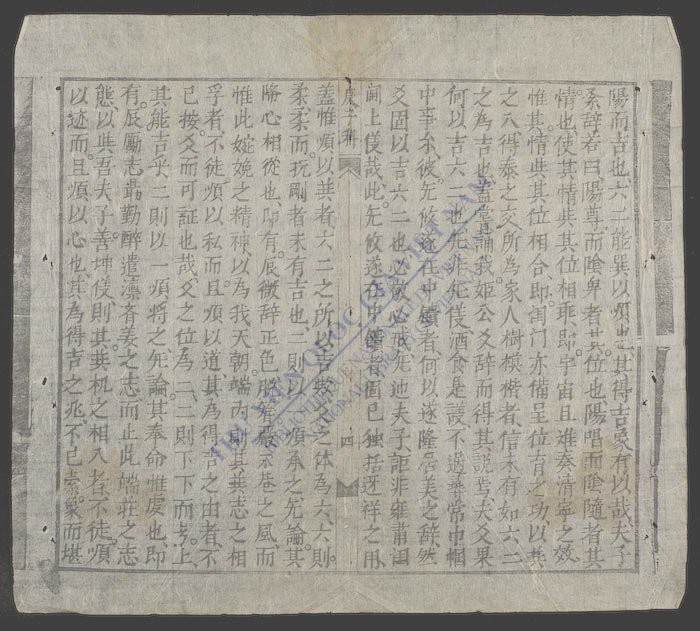 陽而吉也六二能巽以順也其得吉爻有以哉夫子
系辞若曰陽尊而陰卑者其位也陽唱而陰隨者其
情也使其情與其位相乖即宇宙且難奏清寧之效
惟其情與其位相合即閨門亦備呈位育之功以共
之六得泰之交所為家人樹模楷者信未有如六二
之為吉也蓋嘗誦我姬公爻辞而得其説焉夫爻果
何以吉六二也先非先僕酒食是議不過尋常巾幗
中事尔彼无攸遂在中饋者何以遂隆居美之辞然
爻固以吉六二也必敬必戒
閫上僕哉此无攸遂在中饋者固已独括迓祥之用
庚子科
四
蓋惟順以共者六二之所以吉與爻之体為六六則
柔柔而抗剛者未有吉也二則以順承之先論其
降心相從也即有辰微辞正色
惟此婉娩之精神以為我天朝端内則其與志之相
孚者不徒順以私而且順以道其為得吉之由者不
已按爻而可証也哉爻之位為二二則下下而
其能吉乎二則以一順將之先論其奉命惟虔也即
有辰勵志勗勤醉遣凛斉姜之志而止此端莊之志
態以與吾夫子善坤僕則其與机之相入者不徒順
以迹而且順以心也其為得吉之兆不已索象而堪
THƯ VIỆN QUỐC GIA VIỆT NAM
NATIONAL LIBRARY OF VIETNAM